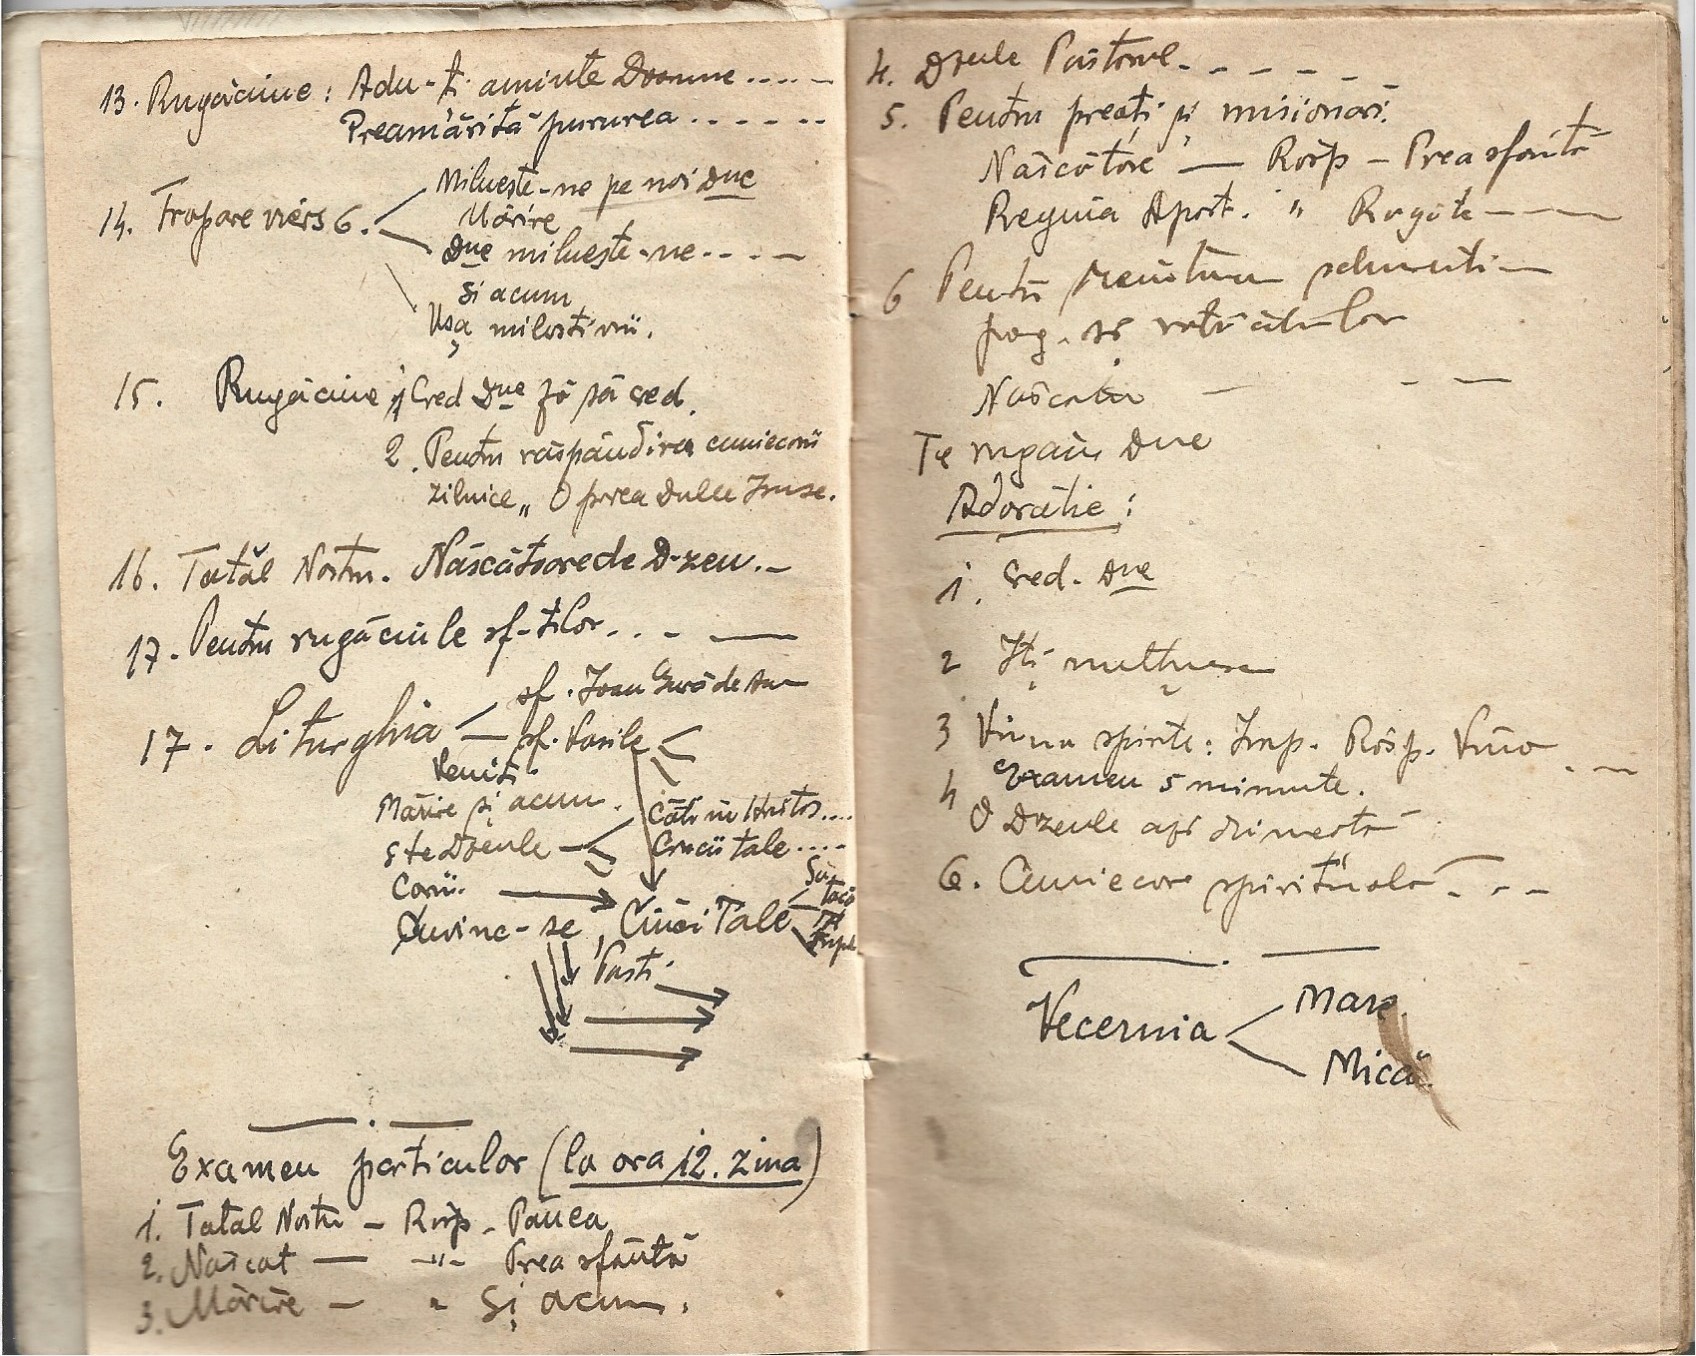 13. Rugăciune: Adu-ți aminte Doamne.....
Preamărită pururea......
14. Tropare viers 6.
Miluește-ne pe noi Dne
Mărire
Dne miluește-ne....
Și acum
Ușa milostivirii.
15. Rugăciune 1) Cred Dne fă să cred.
2. Pentru răspândirea cuminecării
zilnice „ O prea dulce Isuse.
16. Tatăl Nostru. Născătoare de D-zeu.-
17. Pentru rugăciunile sf-ților...
17. Liturghia
sf. Ioan Gură de Aur
sf. Vasile
Veniți
Mărire și acum.
Câți în Hristos....
Ste Dzeule
Crucii tale....
Cuvine-se, Crucii Tale
Paști.
Examen particular (la ora 12. ziua)
1. Tatăl Nostru - Răsp - Pâinea
2. Născăt — -"- Prea sfântă
3. Mărire — " Și acum.
4. Dzeule Păstorul- - - - - -
5. Pentru preoți și misionari.
Născătore — Răsp - Prea sfântă
Regina Apost. " Rugăte ——
6 Pentru
pag. și rătăciților
Născăt — - —
Te rugăm Dne
Adorație:
1. Cred. Dne
2 Iți mulțumesc
3 Vino spirite: Imp. Răsp. Vino
4 Examen 5 minute.
O Dzeule
6. Cuminecare spirituală - - -
Vecernia
Mare
Mică